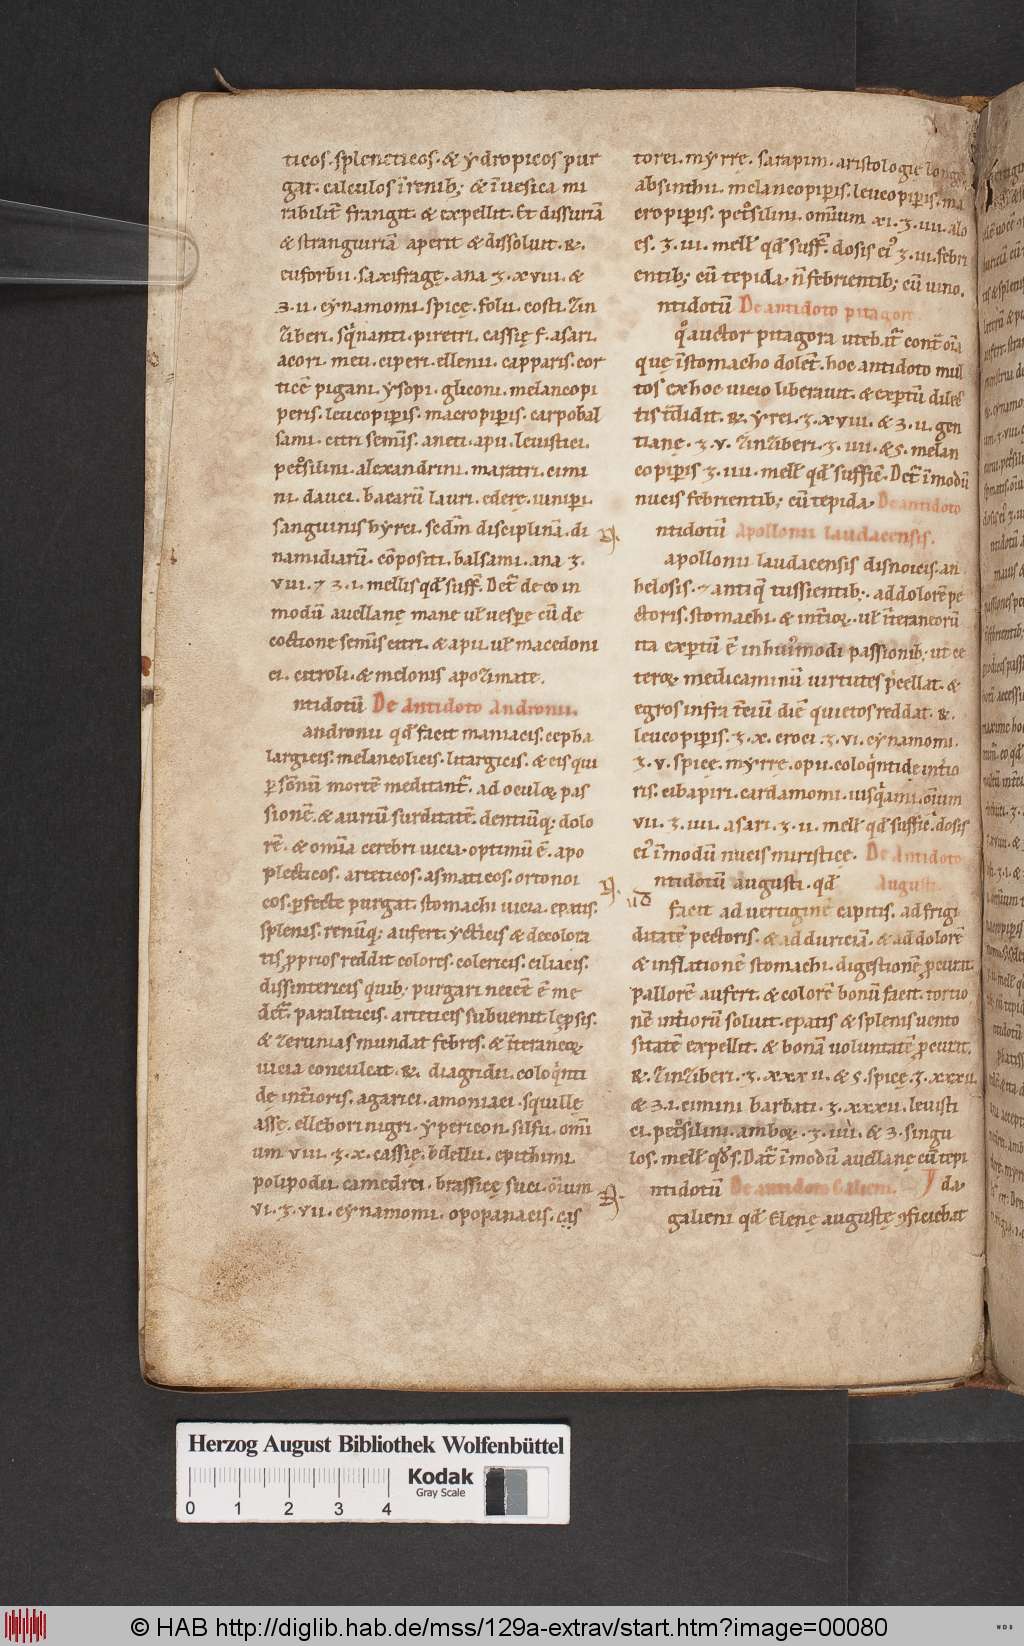 ticos. spleneticos. & ydropicos pur
gat. calculos īrenib; & īuesica mi
rabilit̄ frangit. & expellit. Et dissuriā
& stranguriā aperit & dissoluit. R̄.
euforbii. saxifragę. ana ʒ. xviii. &
ʒ. ii. cynamomi. spicę. folii. costi. zin
ziberi. sq̄nanti. piretri. cassię f. asari.
acori. meu. ciperi. ellenii. capparis. cor
ticē pigani. ysopi. gliconi. melancopi
peris. leucopip̄is. macropip̄is. carpobal
sami. citri semīs. aneti. apii. leuistici.
pet̄silini. alexandrini. maratri. cimi
ni. dauci. bacarū lauri. ederę. iunipi.
sanguinis hyrci. sedm̄ disciplinā. di
namidiarū. cōpositi. balsami. ana ʒ.
viii. ⁊ ʒ. i. mellis qd̄ suff̄. Det̄ de eo in
modū auellanę mane ul̄ uesperę cū de
coctione semīs citri. & apii. ul̄ macedoni
ci. citroli. & melonis apozimate.
ntidotū De Antidoto Andronii.
andronii qd̄ facit maniacis. cepha
largicis. melancolicis. litargicis. & eis qui
p̄ sōnū mortē meditant̄. ad oculoꝝ pas
sionē. & auriū surditatē. dentiūq; dolo
rē. & omīa cerebri uicia. optimū ē. apo
plecticos. arteticos. asmaticos. ortonoi
cos. pfecte purgat. stomachi uicia. epatis.
splenis. renūq; aufert. yctericis & decolora
tis pprios reddit colores. colericis. ciliacis.
dissintericis quib; purgari necesē ē me
det̄. paraliticis. arteticis subuenit lęprsis.
& zernias mundat febres. & īteraneoꝝ
uicia conculcat. R̄. diagridii. coloq̄nti
dę int̄ioris. agarici. amoniaci. squille
assę. ellebori nigri. ypericon. silfii. omī
um viii. ʒ. x. cassię. bdellii. epithimi.
polipodii. camedrei. brassicę suci. oīum
vi. ʒ. vii. cynamomi. opopanacis. cas
torei. myrrę. sarapim. aristologię longę.
absinthii. melancopip̄is. leucopip̄is. ma
cropip̄is. pet̄silini. omīum xi. ʒ. iiii. alo
es. ʒ. iii. mell̄ qd̄ suff̄. dosis ei' ʒ. iii. febri
entib; cū tepida. n̄ febrientib; cū uino.
ntidotū De antidoto pitagore
q̄ auctor pitagora utebat̄ cont̄ oīa
quę īstomacho dolent̄. hoc antidoto mul
tos ex hoc uicio liberauit. & exp̄tū dilec
tis t̄didit. R̄. yrei. ʒ. xviii. & ʒ. ii. gen
tianę. ʒ. v. zinziberi. ʒ. iiii. & s. melan
copip̄is ʒ. iiii. mell̄ qd̄ suffic̄. Det̄ ī modū
nucis febrientib; cū tepida. De antidoto
ntidotū Apollonii laudacensis.
apollonii laudacensis disnoicis. an
helosis. ⁊ antiq̄ tussientib;. ad dolorē pe
ctoris. stomachi. & int̄ioꝝ. ul̄ īteraneorū
ita exp̄tū ē in hui'modi passionib; ut ce
teroꝝ medicaminū uirtutes p̄cellat. &
egros infra t̄ciū diē quietos reddat. R̄.
leucopip̄is. ʒ. x. croci. ʒ. vi. cynamomi.
ʒ. v. spicę. myrrę. opii. coloq̄ntidę int̄io
ris. cibapiri. cardamomi. iusq̄ami. oīum
vii. ʒ. iiii. asari. ʒ. ii. mell̄ qd̄ suffic̄. dosis
ei' ī modū nucis miristicę. De Antidoto
ntidotū augusti. qd̄ Augusti.
facit ad uertiginē cipitis. ad frigi
ditatē pectoris. & ad duriciā. & ad dolorē
& inflationē stomachi. digestionē pcurat.
pallorē aufert. & colorē bonū facit. tortio
nē int̄iorū soluit. epatis & splenis uento
sitatē expellit. & bonā uoluntatē pcurat.
R̄. zinziberi. ʒ. xxxii. & s. spicę. ʒ. xxxii.
& ʒ. i. cimini barbati. ʒ. xxxii. leuisti
ci. pet̄silini. amboꝝ. ʒ. iiii. & ʒ. singu
los. mell̄ qd̄ s. Dat̄ ī modū auellanę cū tepi
ntidotū De antidoto Galieni. da.
galieni qd̄ Elenę augustę ꝯficiebat
Herzog August Bibliothek Wolfenbüttel
Kodak
Gray Scale
0 1 2 3 4
© HAB http://diglib.hab.de/mss/129a-extrav/start.htm?image=00080